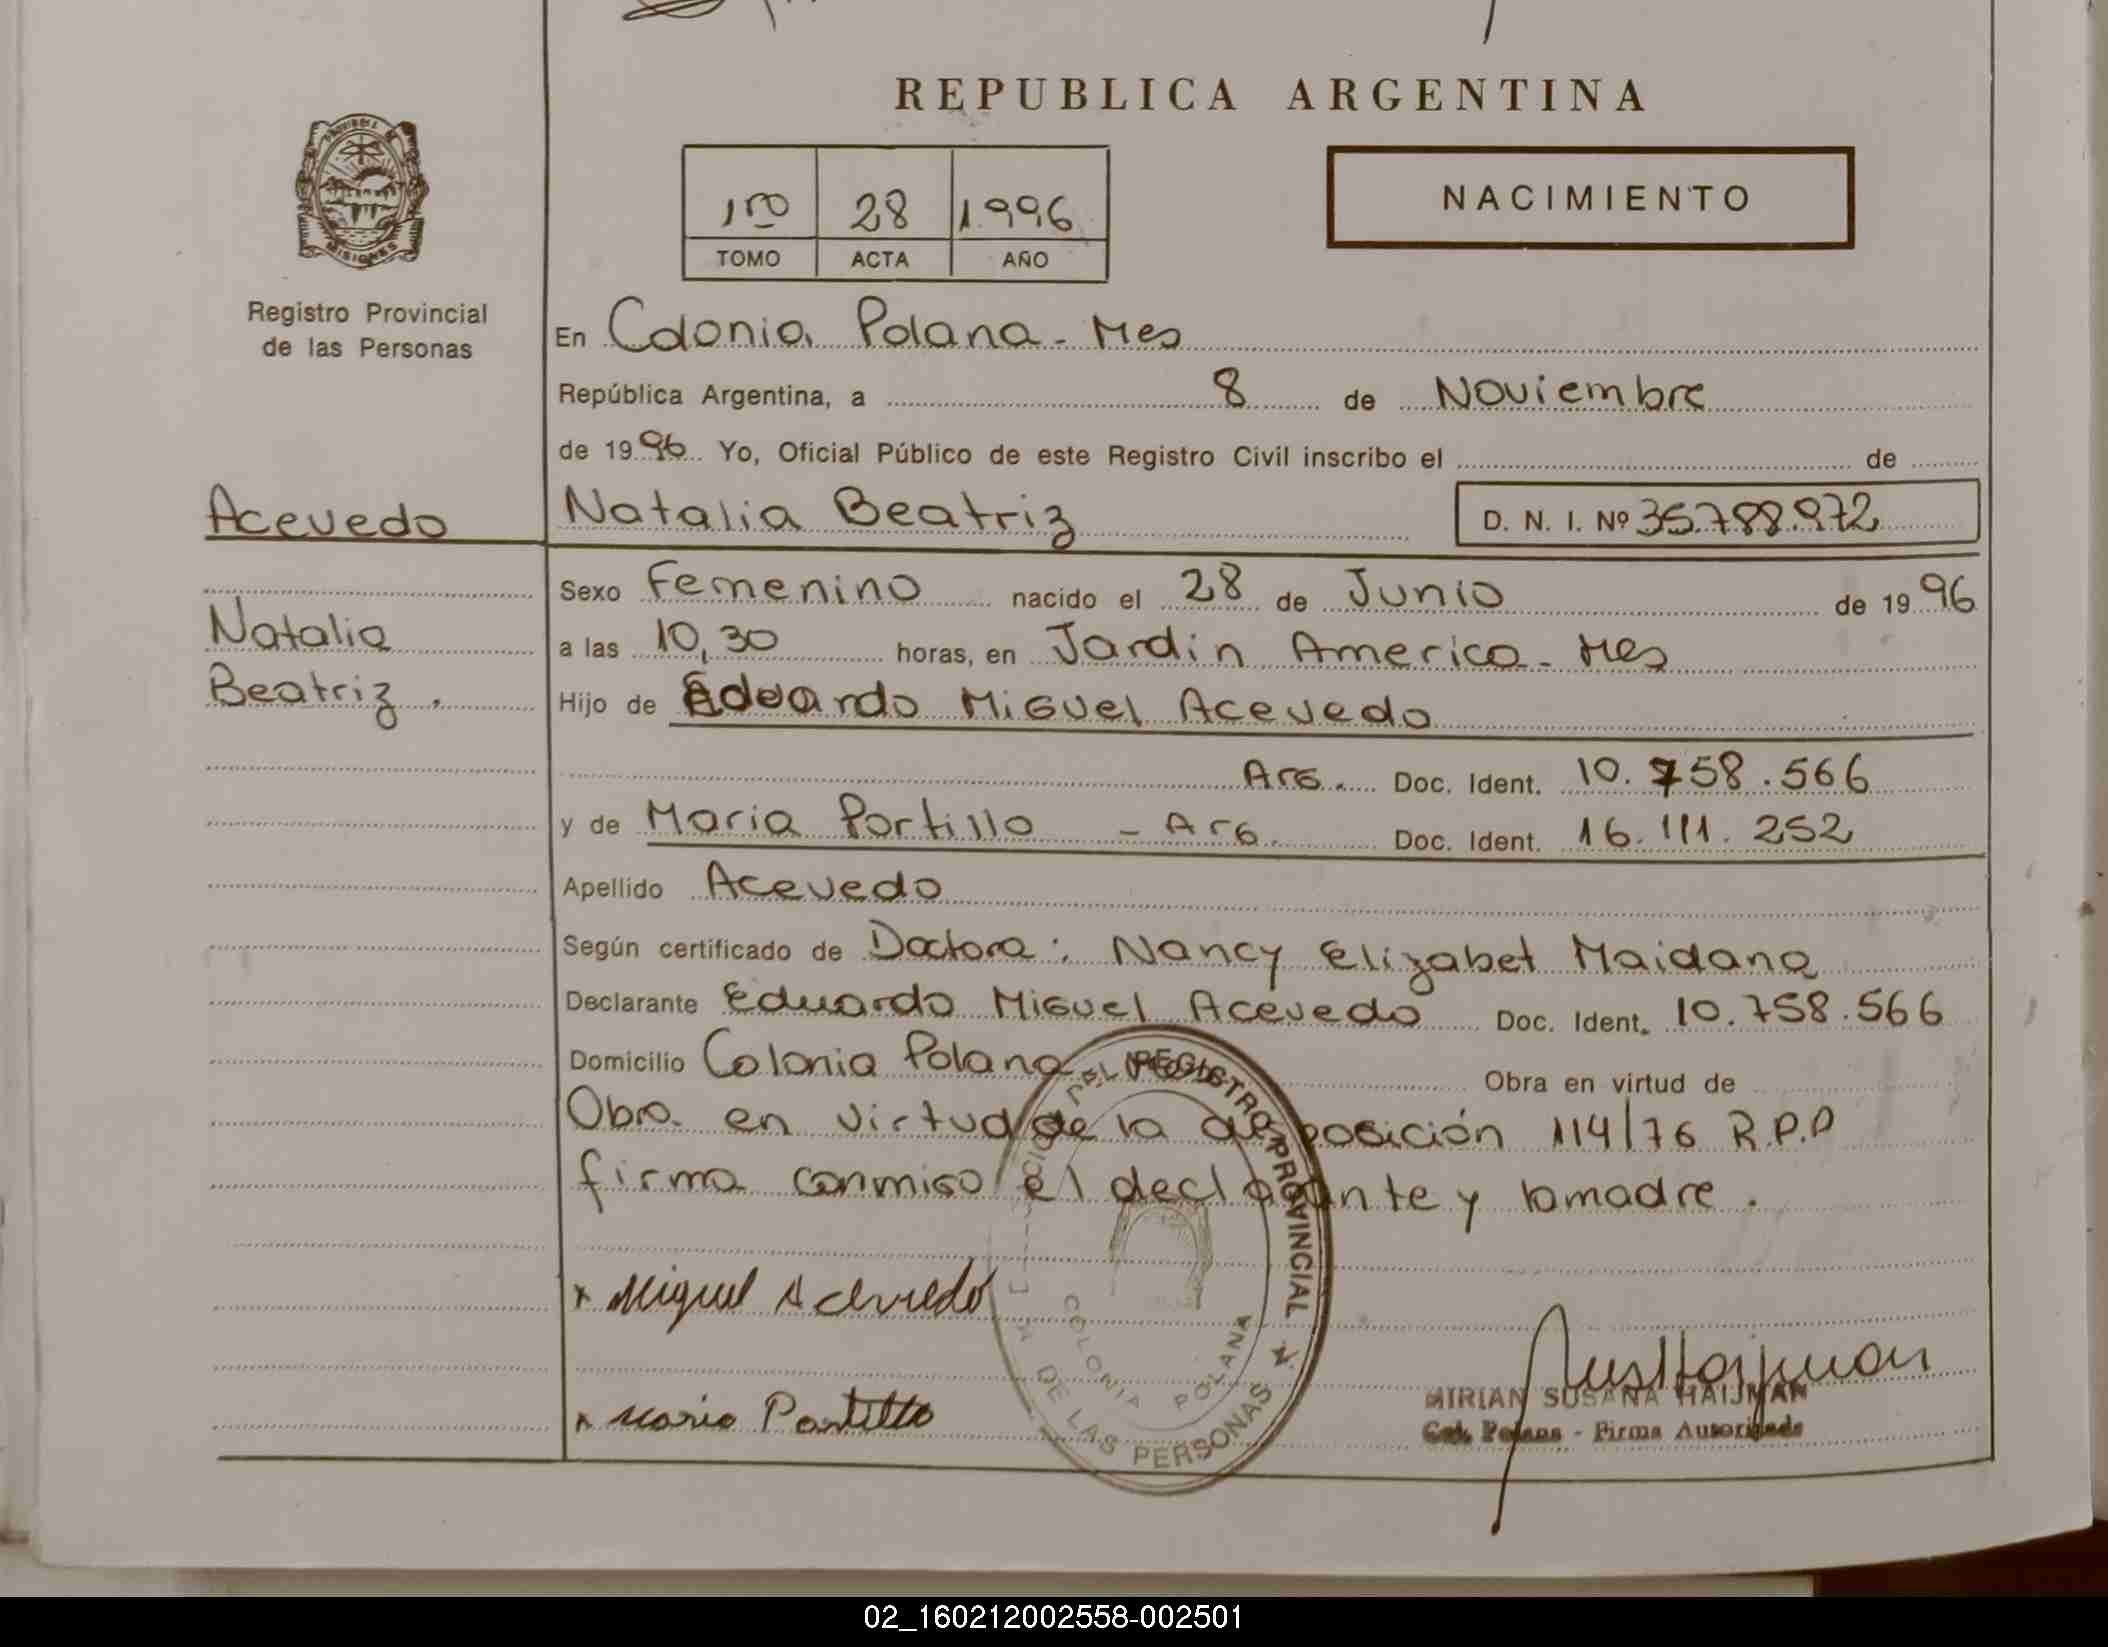 REPUBLICA ARGENTINA
MISIONES
Registro Provincial
de las Personas
1ro 28 1.996
TOMO ACTA AÑO
NACIMIENTO
En Colonia Polana - Mes
República Argentina, a 8 de Noviembre
de 1996 Yo, Oficial Público de este Registro Civil inscribo el de
Acevedo
Natalia
Beatriz.
Natalia Beatriz D. N. I. Nº 35.788.972
Sexo Femenino nacido el 28 de Junio de 1996
a las 10,30 horas, en Jardin America - Mes
Hijo de Eduardo Miguel Acevedo
Arg. Doc. Ident. 10.758.566
y de Maria Portillo - Arg. Doc. Ident. 16.111.252
Apellido Acevedo
Según certificado de Doctora: Nancy Elizabet Maidana
Declarante Eduardo Miguel Acevedo Doc. Ident. 10.758.566
Domicilio Colonia Polana Obra en virtud de
Obra en virtud de la disposición 114/76 R.P.P
firma conmigo el declarante y la madre.
REGISTRO PROVINCIAL
DE LAS PERSONAS
COLONIA POLANA
x Miguel Acevedo
x Maria Portillo
MIRIAN SUSANA HAIJMAN
Col. Polana - Firma Autorizada
02_160212002558-002501